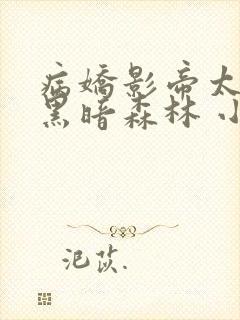 病嬌影帝太
黑暗森林 小
汜苡.